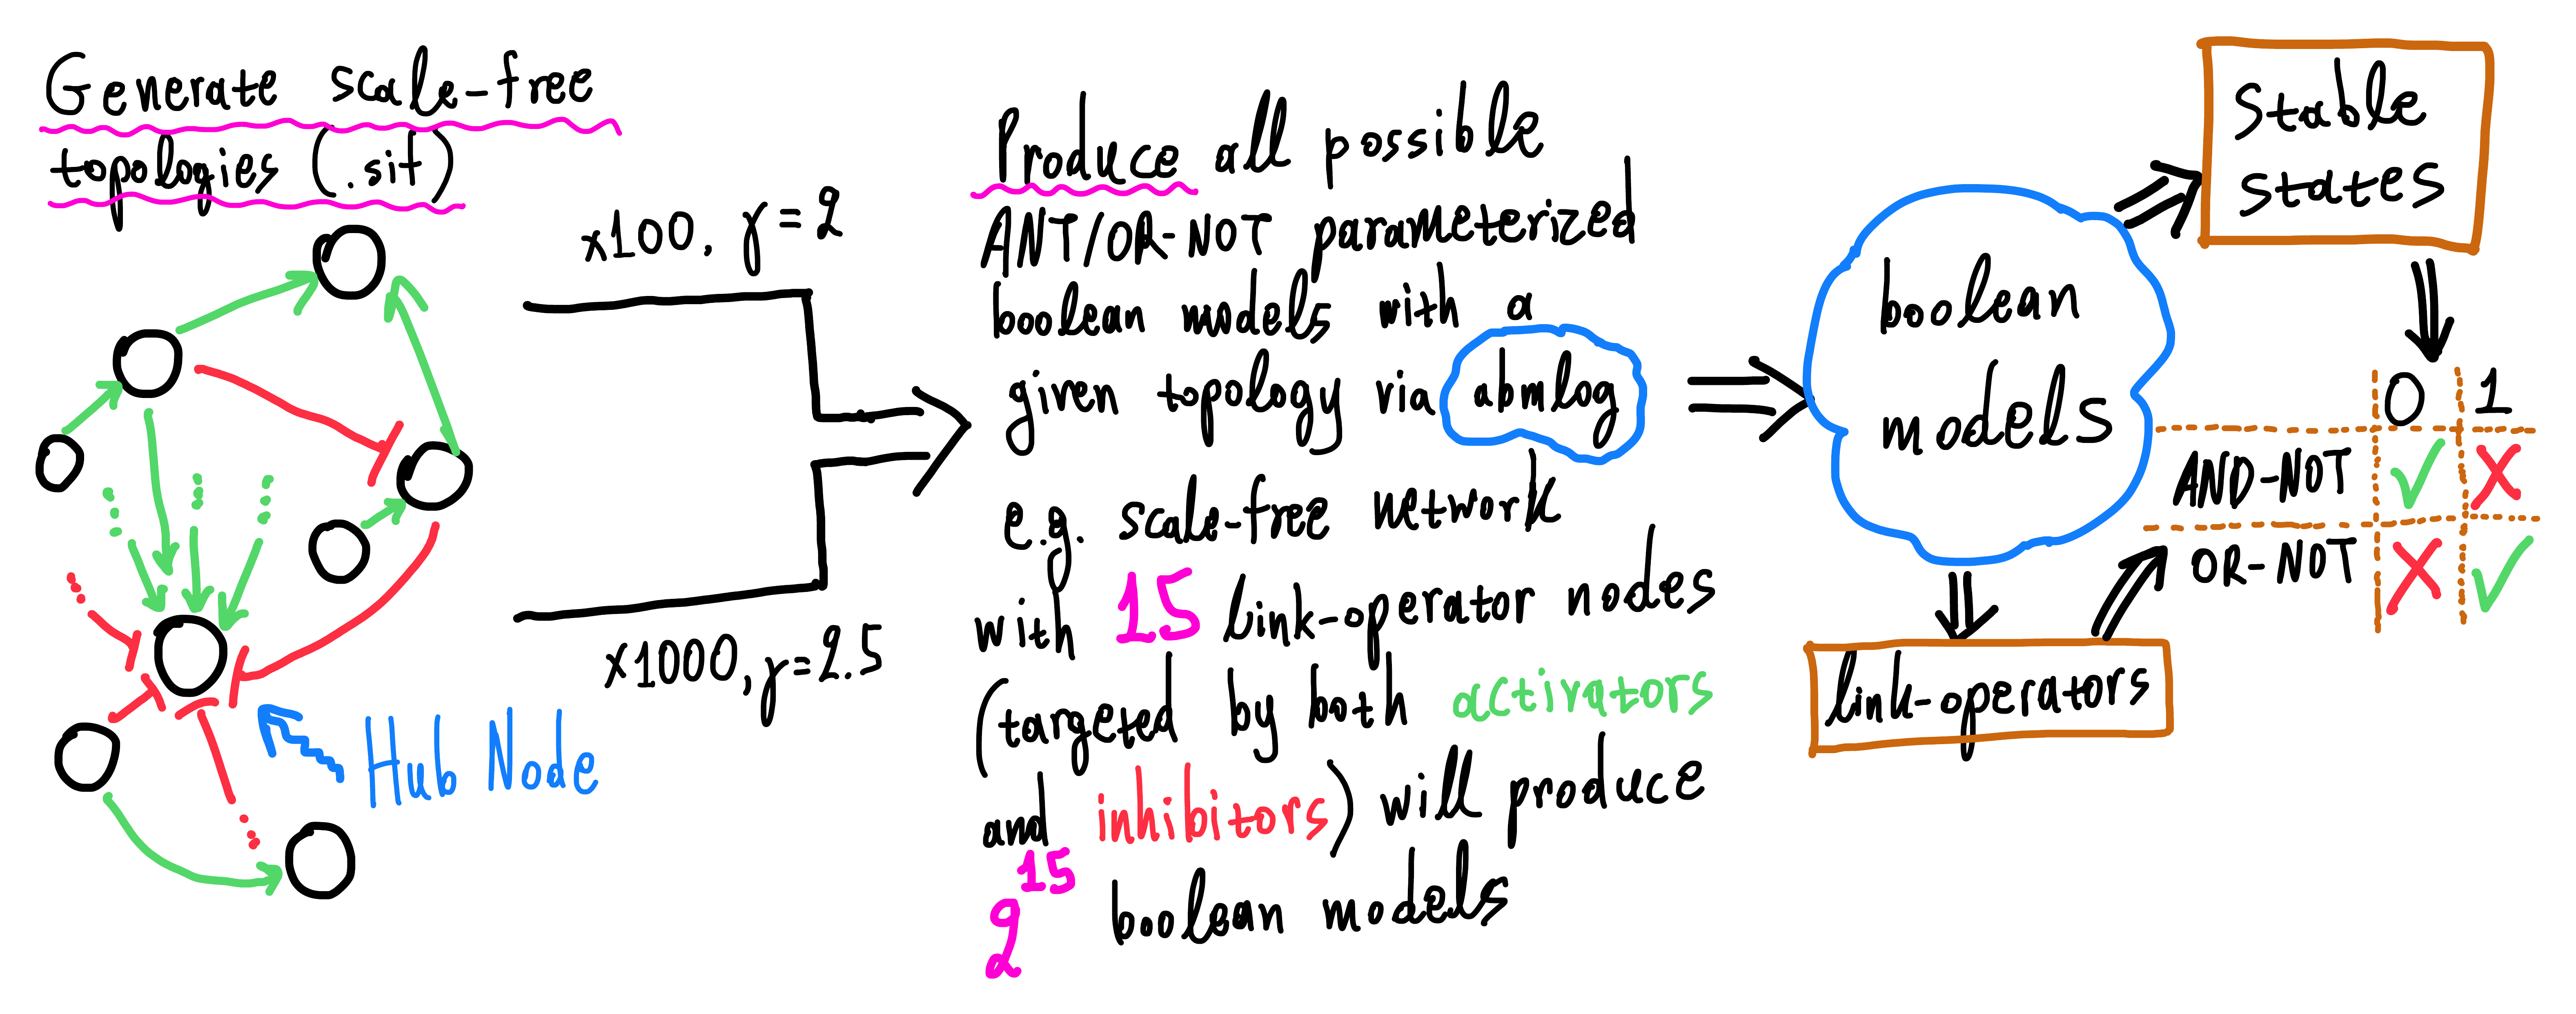 Generate scale-free
topologies (.sif)
x100, γ=2
x1000, γ=2.5
Hub Node
Produce all possible
ANT/OR-NOT parameterized
boolean models with a
given topology via abmlog
e.g. scale-free network
with 15 link-operator nodes
(targeted by both activators
and inhibitors) will produce
2^15 boolean models
boolean
models
Stable
states
link-operators
0 1
AND-NOT
OR-NOT